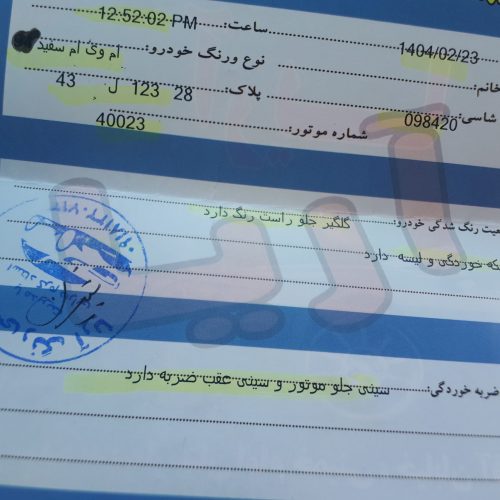 1404/02/23 ساعت: 12:52:02 PM
خانم: نوع ورنگ خودرو: ام وی ام سفید
شاسی: 098420 پلاک: 28 123 J 43
شماره موتور: 40023
گلگیر جلو راست رنگ دارد
خوردگی و لیسه دارد
ضربه خوردگی: سینی جلو موتور و سینی عقب ضربه دارد